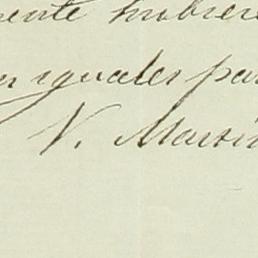 ente hubiere
n iguales par
V. Martin